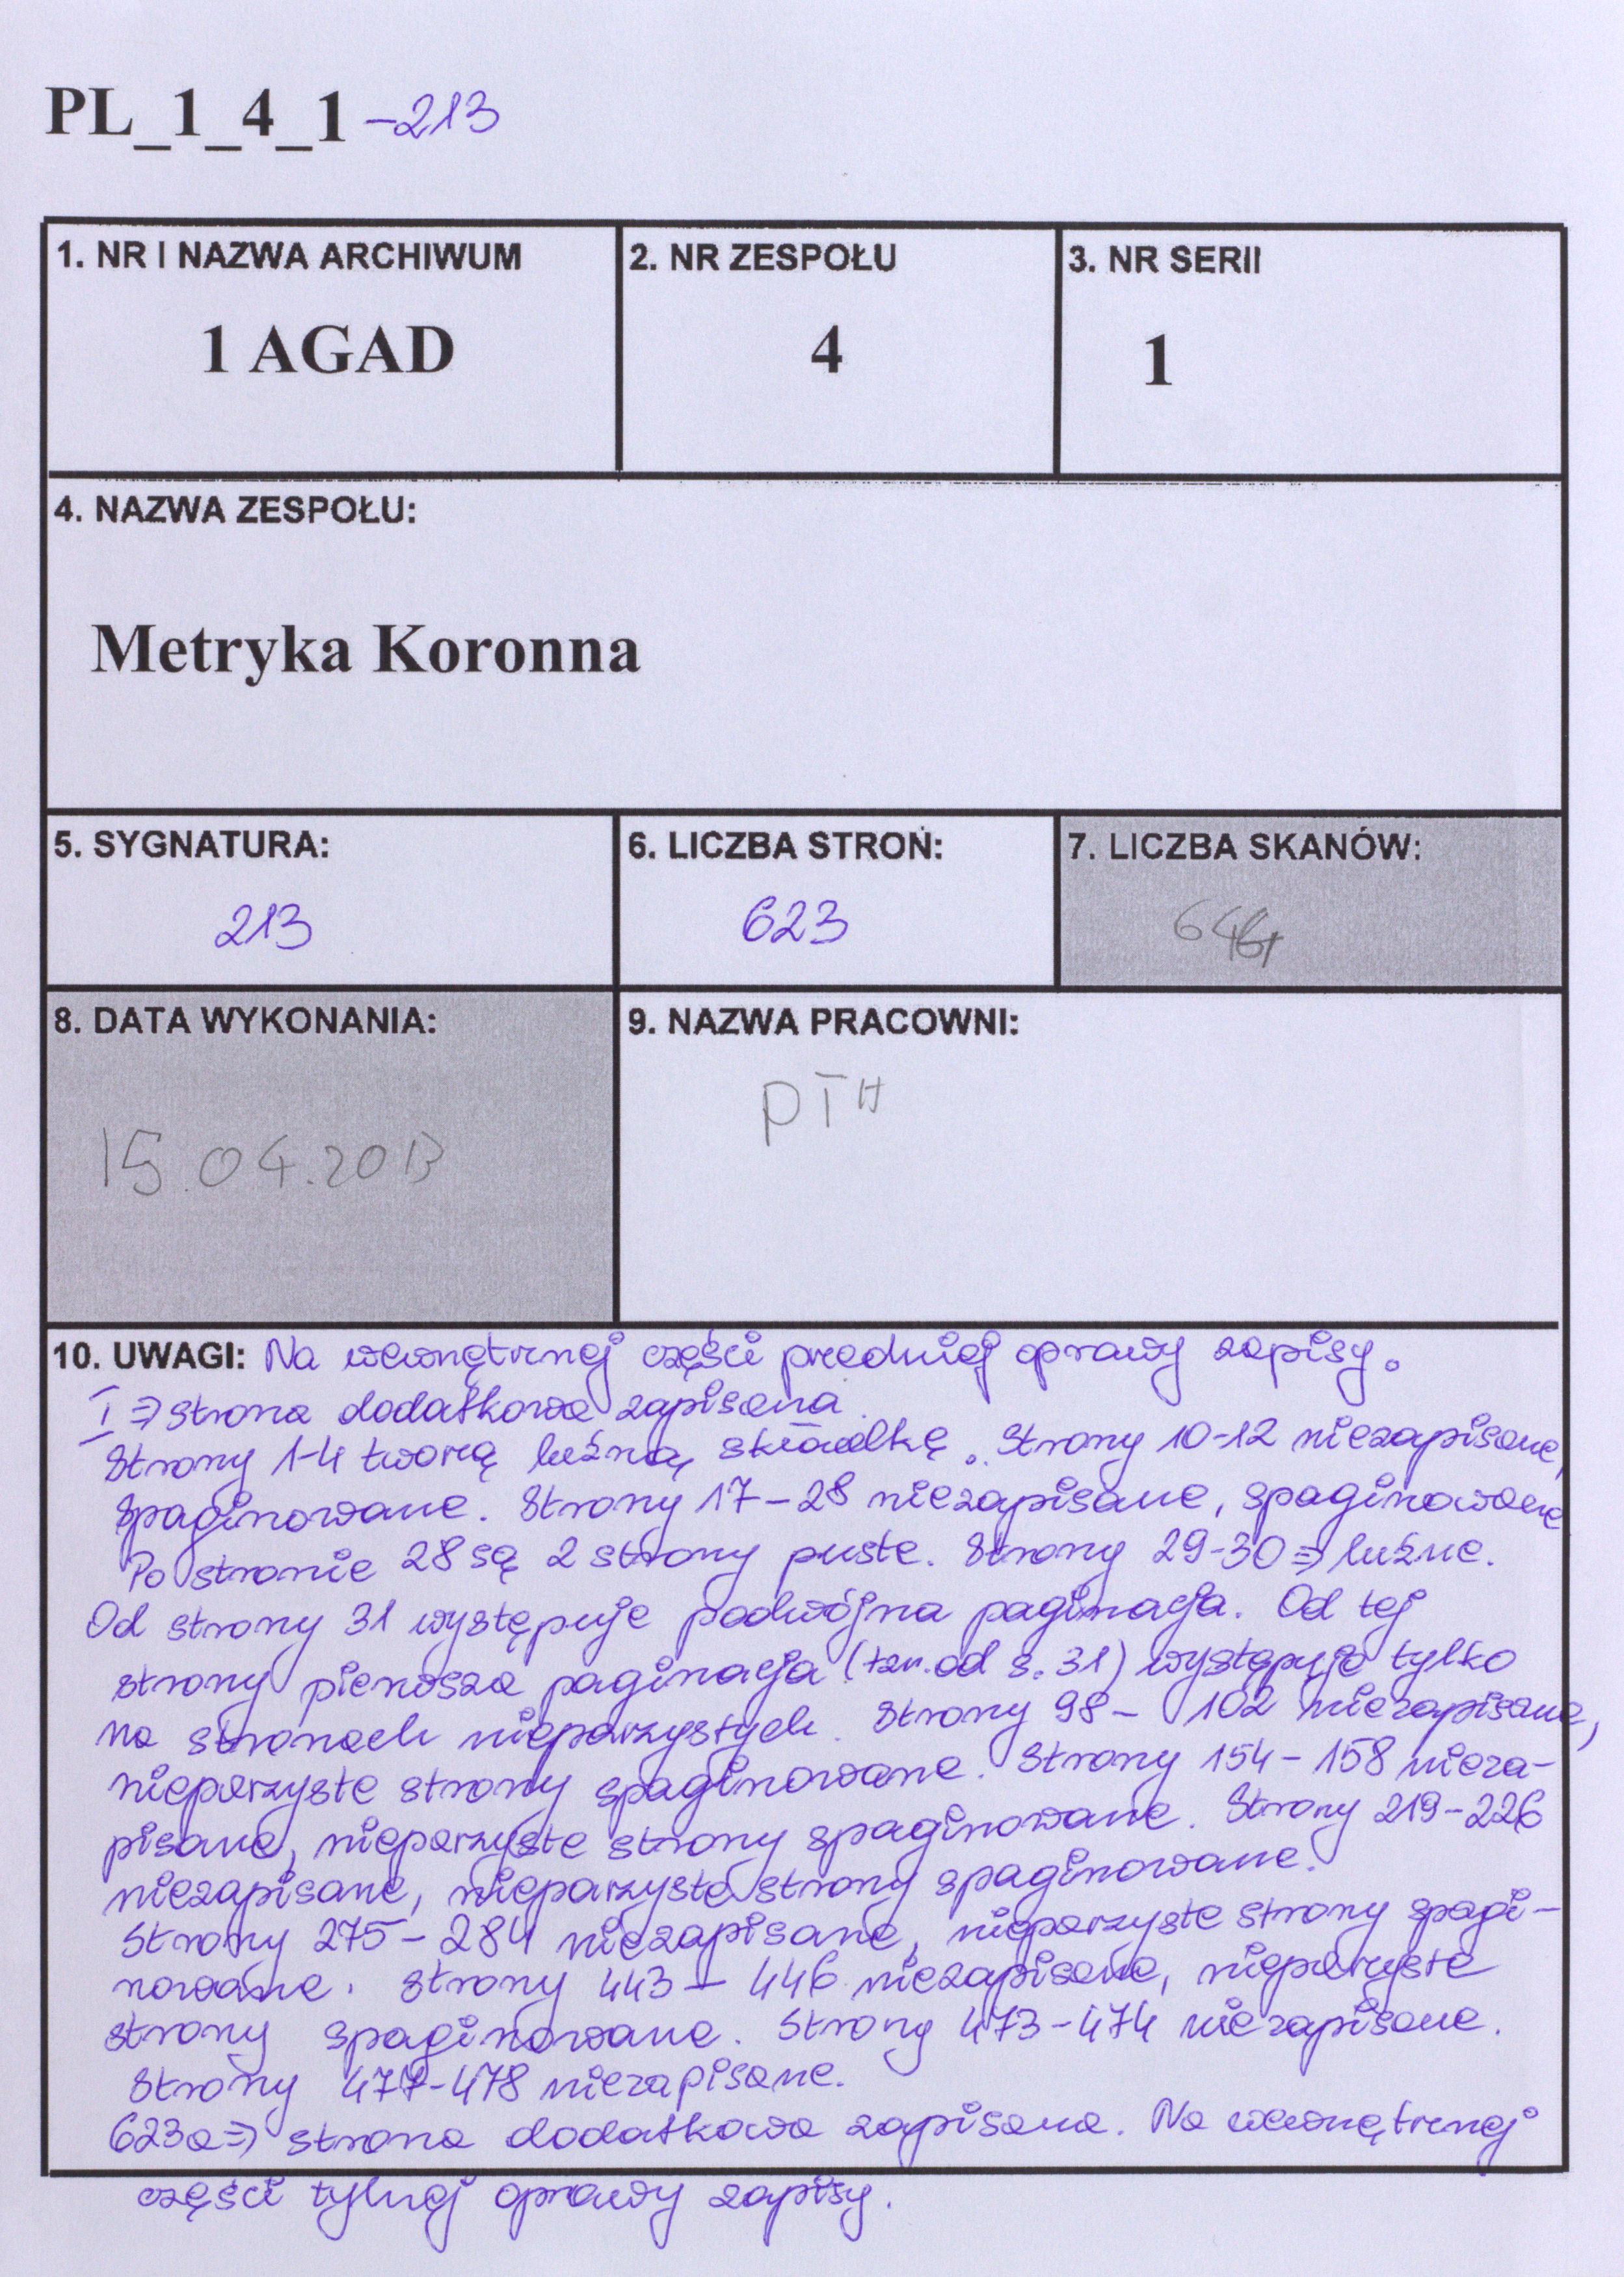 PL_1_4_1 -213
1. NR I NAZWA ARCHIWUM
1 AGAD
2. NR ZESPOŁU
4
3. NR SERII
1
4. NAZWA ZESPOŁU:
Metryka Koronna
5. SYGNATURA:
213
6. LICZBA STRON:
623
7. LICZBA SKANÓW:
8. DATA WYKONANIA:
15.04.2013
9. NAZWA PRACOWNI:
PTH
10. UWAGI: Na wewnętrznej części przedniej oprawy zapisy.
I ⇒ strona dodatkowa zapisana.
Strony 1-4 tworzą luźną składkę. Strony 10-12 niezapisane,
spaginowane. Strony 17-28 niezapisane, spaginowane
Po stronie 28 są 2 strony puste. Strony 29-30 ⇒ luźne.
Od strony 31 występuje podwójna paginacja. Od tej
strony pierwsza paginacja (tzn. od s. 31) występuje tylko
na stronach nieparzystych. Strony 98-102 niezapisane,
nieparzyste strony spaginowane. Strony 154-158 nieza-
pisane, nieparzyste strony spaginowane. Strony 219-226
niezapisane, nieparzyste strony spaginowane.
Strony 275-284 niezapisane, nieparzyste strony spagi-
nowane. Strony 443-446 niezapisane, nieparzyste
strony spaginowane. Strony 473-474 niezapisane.
Strony 477-478 niezapisane.
623a ⇒ strona dodatkowa zapisana. Na wewnętrznej
części tylnej oprawy zapisy.